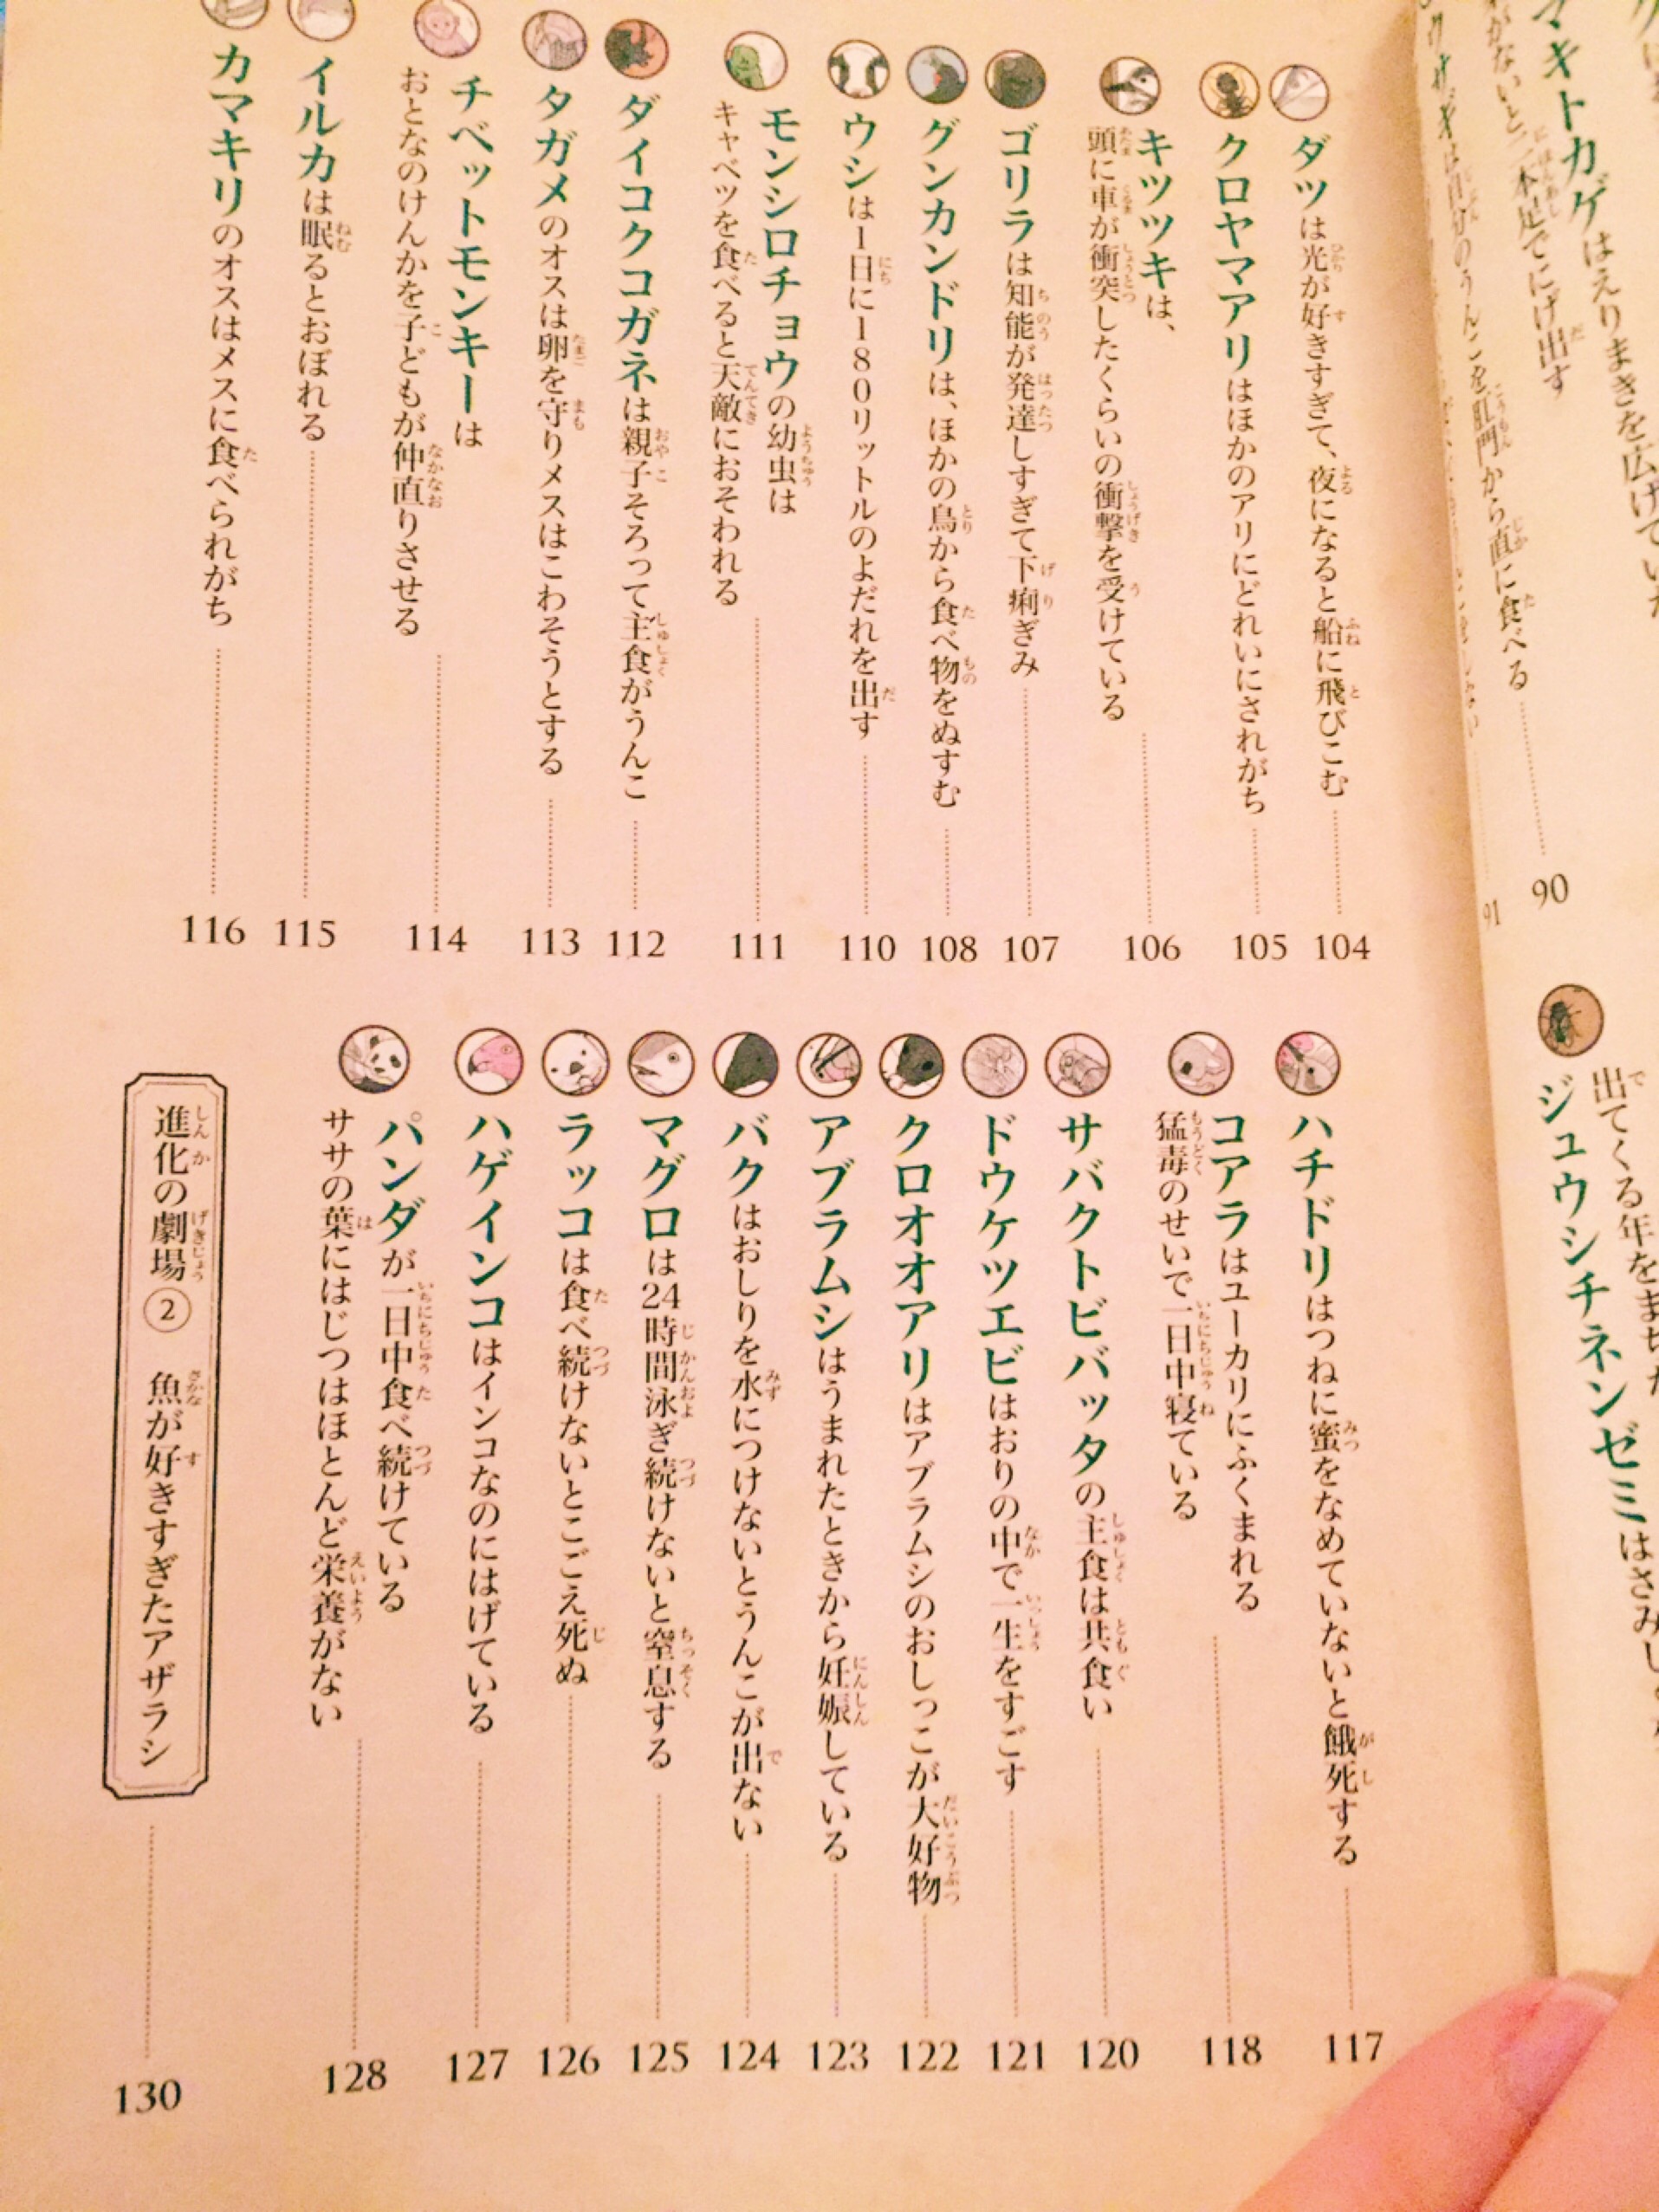 マキトカゲはえりまきを広げて
がないと二本足でにげ出す
90
クサギは自分のうんこを肛門から直に食べる
91
出てくる年をまちが
ジュウシチネンゼミはさみし
ダツは光が好きすぎて、夜になると船に飛びこむ
104
クロヤマアリはほかのアリにどれいにされがち
105
キツツキは、
頭に車が衝突したくらいの衝撃を受けている
106
ゴリラは知能が発達しすぎて下痢ぎみ
107
グンカンドリは、ほかの鳥から食べ物をぬすむ
108
ウシは1日に180リットルのよだれを出す
110
モンシロチョウの幼虫は
キャベツを食べると天敵におそわれる
111
ダイコクコガネは親子そろって主食がうんこ
112
タガメのオスは卵を守りメスはこわそうとする
113
チベットモンキーは
おとなのけんかを子どもが仲直りさせる
114
イルカは眠るとおぼれる
115
カマキリのオスはメスに食べられがち
116
ハチドリはつねに蜜をなめていないと餓死する
117
コアラはユーカリにふくまれる
猛毒のせいで一日中寝ている
118
サバクトビバッタの主食は共食い
120
ドウケツエビはおりの中で一生をすごす
121
クロオオアリはアブラムシのおしっこが大好物
122
アブラムシはうまれたときから妊娠している
123
バクはおしりを水につけないとうんこが出ない
124
マグロは24時間泳ぎ続けないと窒息する
125
ラッコは食べ続けないとこごえ死ぬ
126
ハゲインコはインコなのにはげている
127
パンダが一日中食べ続けている
ササの葉にはじつはほとんど栄養がない
128
進化の劇場② 魚が好きすぎたアザラシ
130